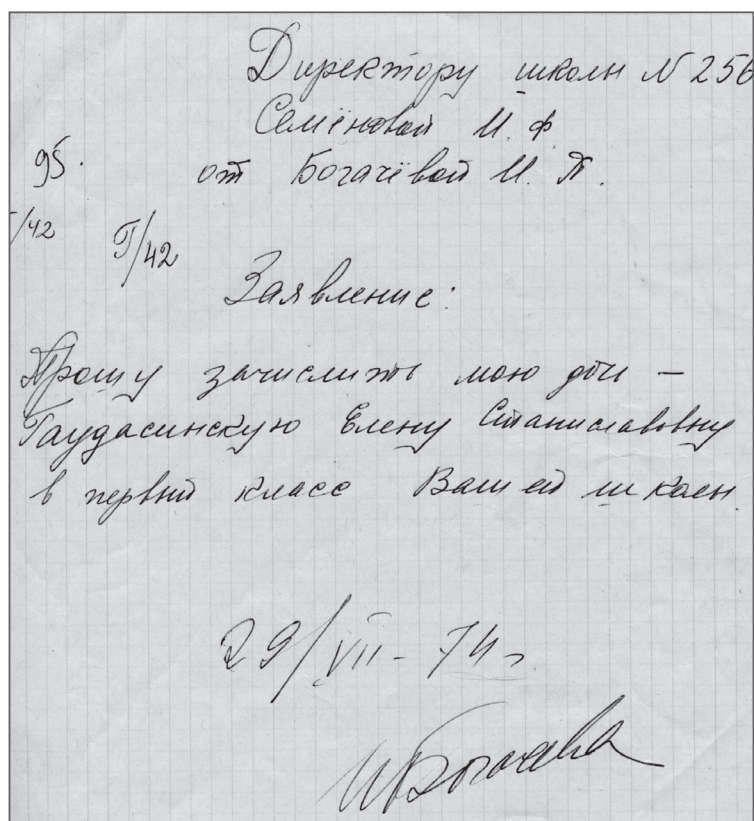 Директору школы N 256
Семёновой И. Ф.
95.
от Богачёвой И. П.
/42
Г/42
Заявление:
Прошу зачислить мою дочь —
Гаудасинскую Елену Станиславовну
в первый класс Вашей школы
29/VII - 74 г.
ИБогачева